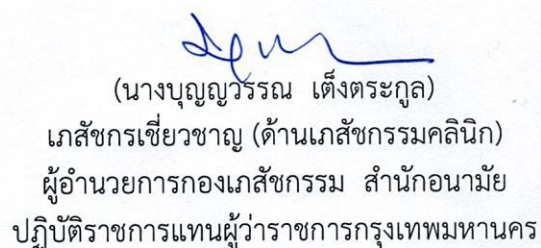 (นางบุญญวรรณ เต็งตระกูล)
เภสัชกรเชี่ยวชาญ (ด้านเภสัชกรรมคลินิก)
ผู้อำนวยการกองเภสัชกรรม สำนักอนามัย
ปฏิบัติราชการแทนผู้ว่าราชการกรุงเทพมหานคร